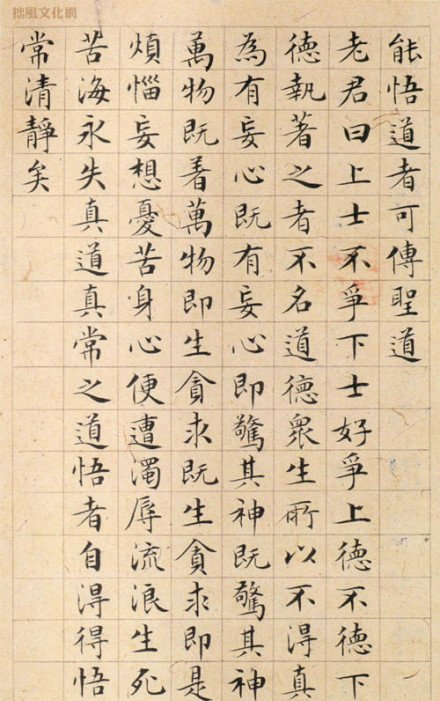 拙風文化網
能悟道者可傳聖道
老君曰上士不爭下士好爭上德不德下
德執著之者不名道德衆生所以不得真
為有妄心既有妄心即驚其神既驚其神
萬物既着萬物即生貪求既生貪求即是
煩惱妄想憂苦身心便遭濁辱流浪生死
苦海永失真道真常之道悟者自得得悟
常清靜矣